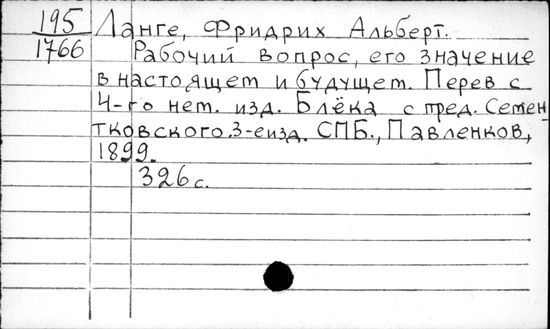 195 Ланге, Фридрих Альберт.
1766 Рабочий вопрос, его значение
в настоящем и будущем. Перев с
4-го нем. изд. Блёка с пред. Семен
тковского. 3-е изд. СПБ., Павленков,
1899.
326 с.